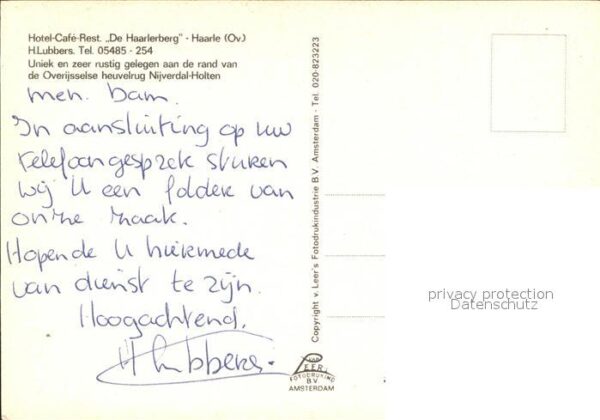 Hotel-Café-Rest. „De Haarlerberg" - Haarle (Ov.)
H.Lubbers. Tel. 05485 - 254
Uniek en zeer rustig gelegen aan de rand van
de Overijsselse heuvelrug Nijverdal-Holten
men. Dam.
In aansluiting op uw
telefoongesprek sturen
wij U een folder van
onze zaak.
Hopende U hiermede
van dienst te zijn.
Hoogachtend,
H Lubbers.
Copyright v. Leer's Fotodrukindustrie B.V. Amsterdam - Tel. 020-823223
VAN
LEER
FOTODRUKIND
BV
AMSTERDAM
privacy protection
Datenschutz